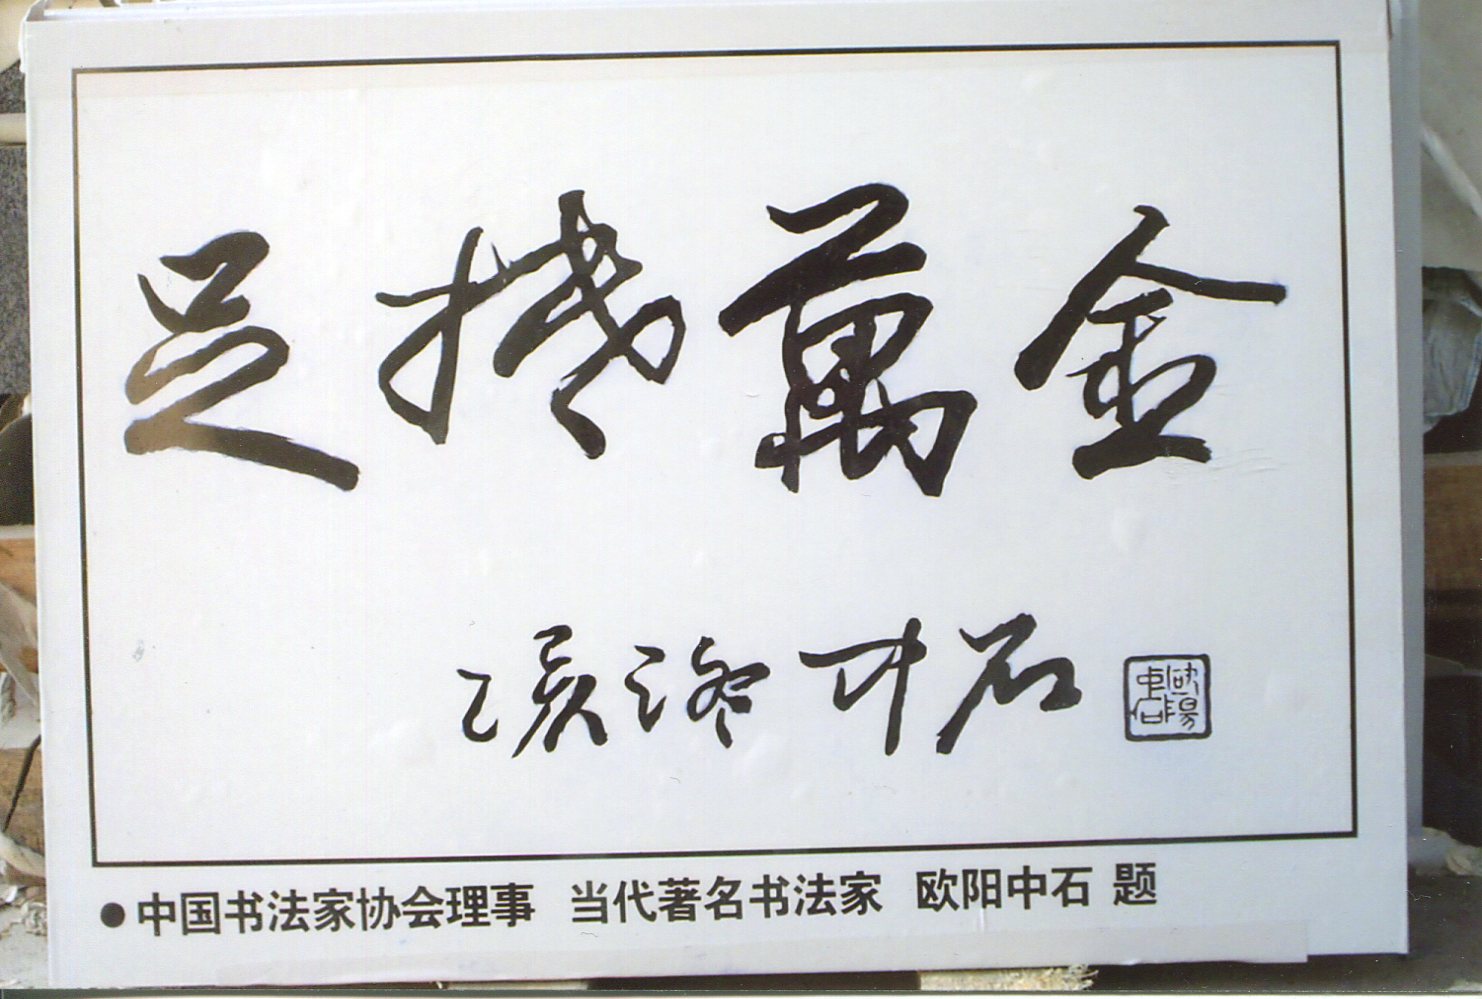 足萬金
乙亥中石
歐陽中石
●中国书法家协会理事 当代著名书法家 欧阳中石 题